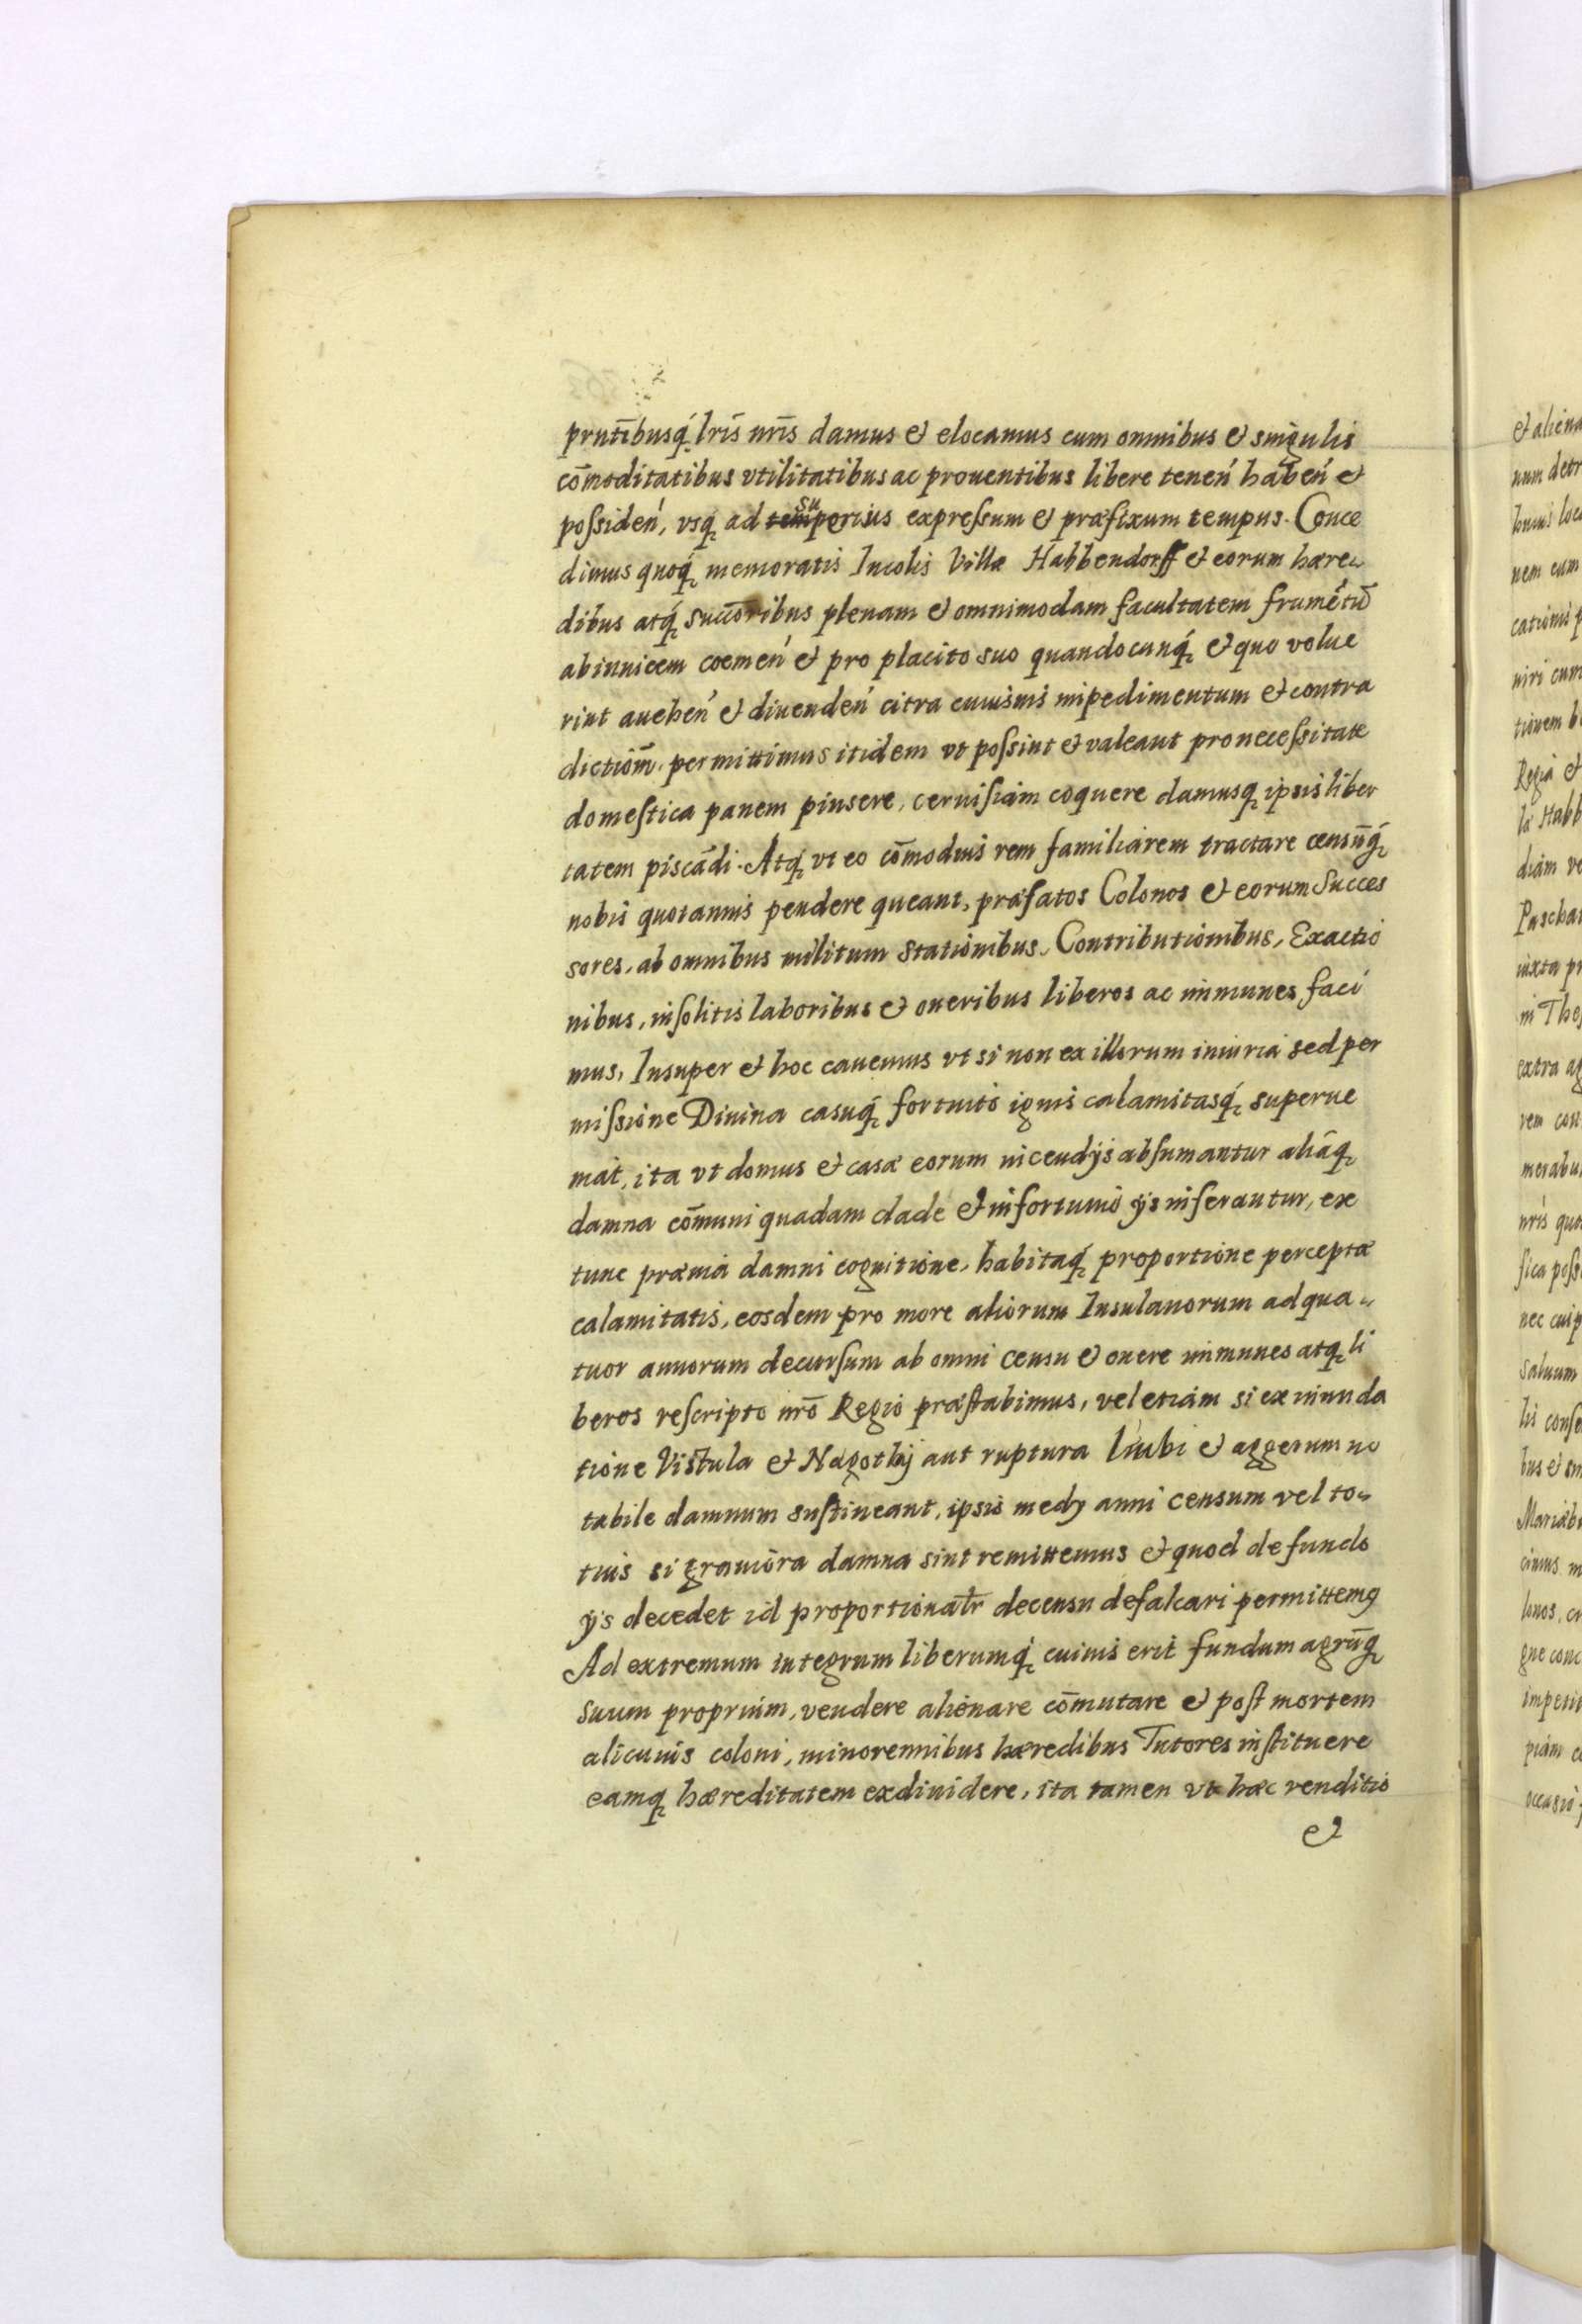 prntībusq́ lrīs nr̄is damus et elocamus cum omnibus et singulis
cōmoditatibus vtilitatibus ac prouentibus libere tenen' haben' et
possiden', vsq ad superius expressum et præfixum tempus. Conce
dimus quoq́ memoratis Incolis Villæ Habbendorff et eorum hære-
dibus atq́ succōribus plenam et omnimodam facultatem frumētū
abinuicem coemen' et pro placito suo quandocunq́ et quo volue
rint auehen' et diuenden' citra cuiusuis impedimentum et contra
dictiōm. permittimus itidem vt possint et valeant pro necessitate
domestica panem pinsere, ceruisiam coquere damusq ipsis liber
tatem piscādi. Atq vt eo cōmodius rem familiarem tractare censūq́
nobis quotannis pendere queant, præfatos Colonos et eorum Succes
sores, ab omnibus militum stationibus, Contributionibus, Exactio
nibus, insolitis laboribus et oneribus liberos ac immunes faci
mus, Insuper et hoc cauemus vt si non ex illorum iniuria sed per
missione Diuina casuq́ fortuito ignis calamitasq́ superue
niat, ita vt domus et casæ eorum incendijs absumantur aliāq
damna cōmuni quadam clade et infortunio ijs inferantur, ex
tunc præuia damni cognitione, habitaq́ proportione perceptæ
calamitatis, eosdem pro more aliorum Insulanorum ad qua-
tuor annorum decursum ab omni censu et onere immunes atq li
beros rescripto nr̄o Regio præstabimus, vel etiam si ex inunda
tione Vistula et Nagothij aut ruptura limbi et aggerum no
tabile damnum sustineant, ipsis medij anni censum vel to-
tius si grauiora damna sint remittemus et quod de fundo
ijs decedet id proportionalr̄ de censu defalcari permittemg
Ad extremum integrum liberumq́ cuiuis erit fundum agrūq
suum proprium, vendere alienare cōmutare et post mortem
alicuius coloni, minorennibus hæredibus Tutores instituere
eamq hæreditatem exdiuidere, ita tamen vt hæc venditio
et